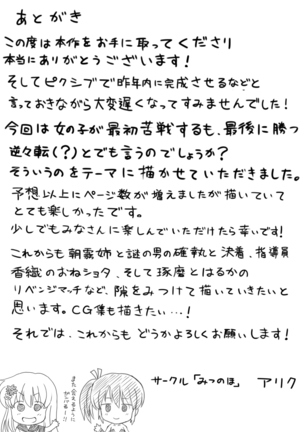 あとがき
この度は本作をお手に取ってくださり
本当にありがとうございます！
そしてピクシブで昨年内に完成させるなどと
言っておきながら大変遅くなってすみませんでした！
今回は女の子が最初苦戦するも、最後に勝つ
逆々転(？)とでも言うのでしょうか？
そういうのをテーマに描かせていただきました。
予想以上にページ数が増えましたが描いていて
とても楽しかったです。
少しでもみなさんに楽しんでいただけたら幸いです！
これからも朝霧姉と謎の男の確執と決着、指導員
香織のおねショタ、そして琢磨とはるかの
リベンジマッチなど、隙をみつけて描いていきたいと
思います。CG集も描きたい…！
それでは、これからもどうかよろしくお願いします！
サークル「みつのほ」 アリク
また会えるように